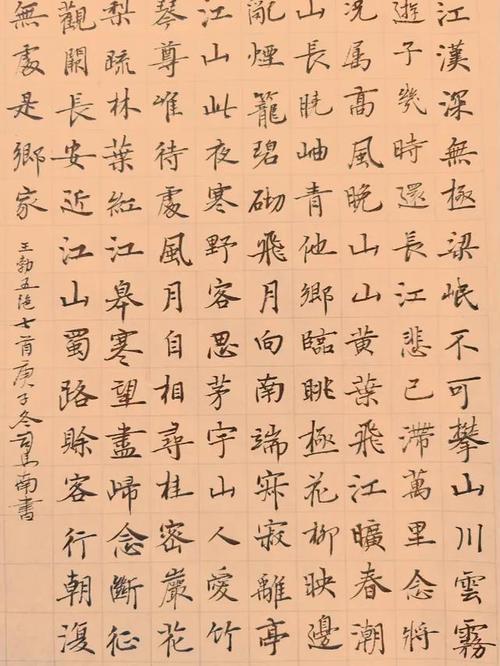 江漢深無極梁岷不可攀山川雲霧
遊子幾時還長江悲已滯萬里念將
况属高風晚山山黃葉飛江曠春潮
山長曉岫青他鄉臨眺極花柳映邊
亂煙籠碧砌飛月向南端寂寂離亭
江山此夜寒野客思茅宇山人愛竹
琴尊唯待處風月自相尋桂密巖花
梨疏林葉紅江皋寒望盡歸念斷征
觀闕長安近江山蜀路賒客行朝復
無處是鄉家
王勃五絕七首庚子冬司馬南書